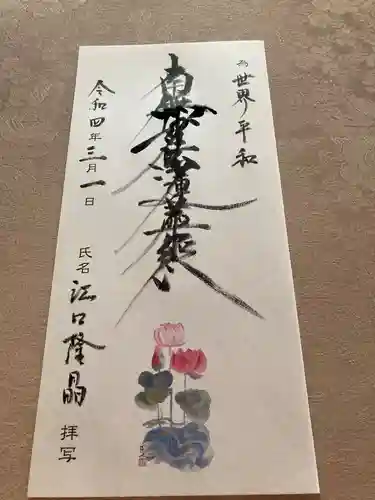 為 世界ノ平和
南無妙法蓮華経
令和四年三月一日
氏名 江口隆晶 拝写